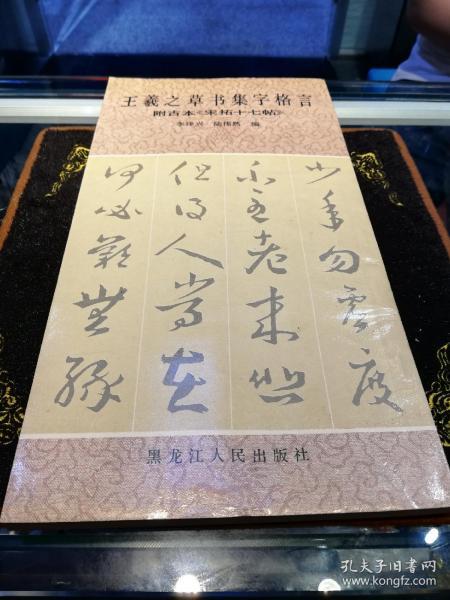 王羲之草书集字格言
附古本《宋拓十七帖》
编
少年勿虚度
不至老来悲
但得人常在
何必歎無緣
黑龙江人民出版社
孔夫子旧书网
www.kongfz.com